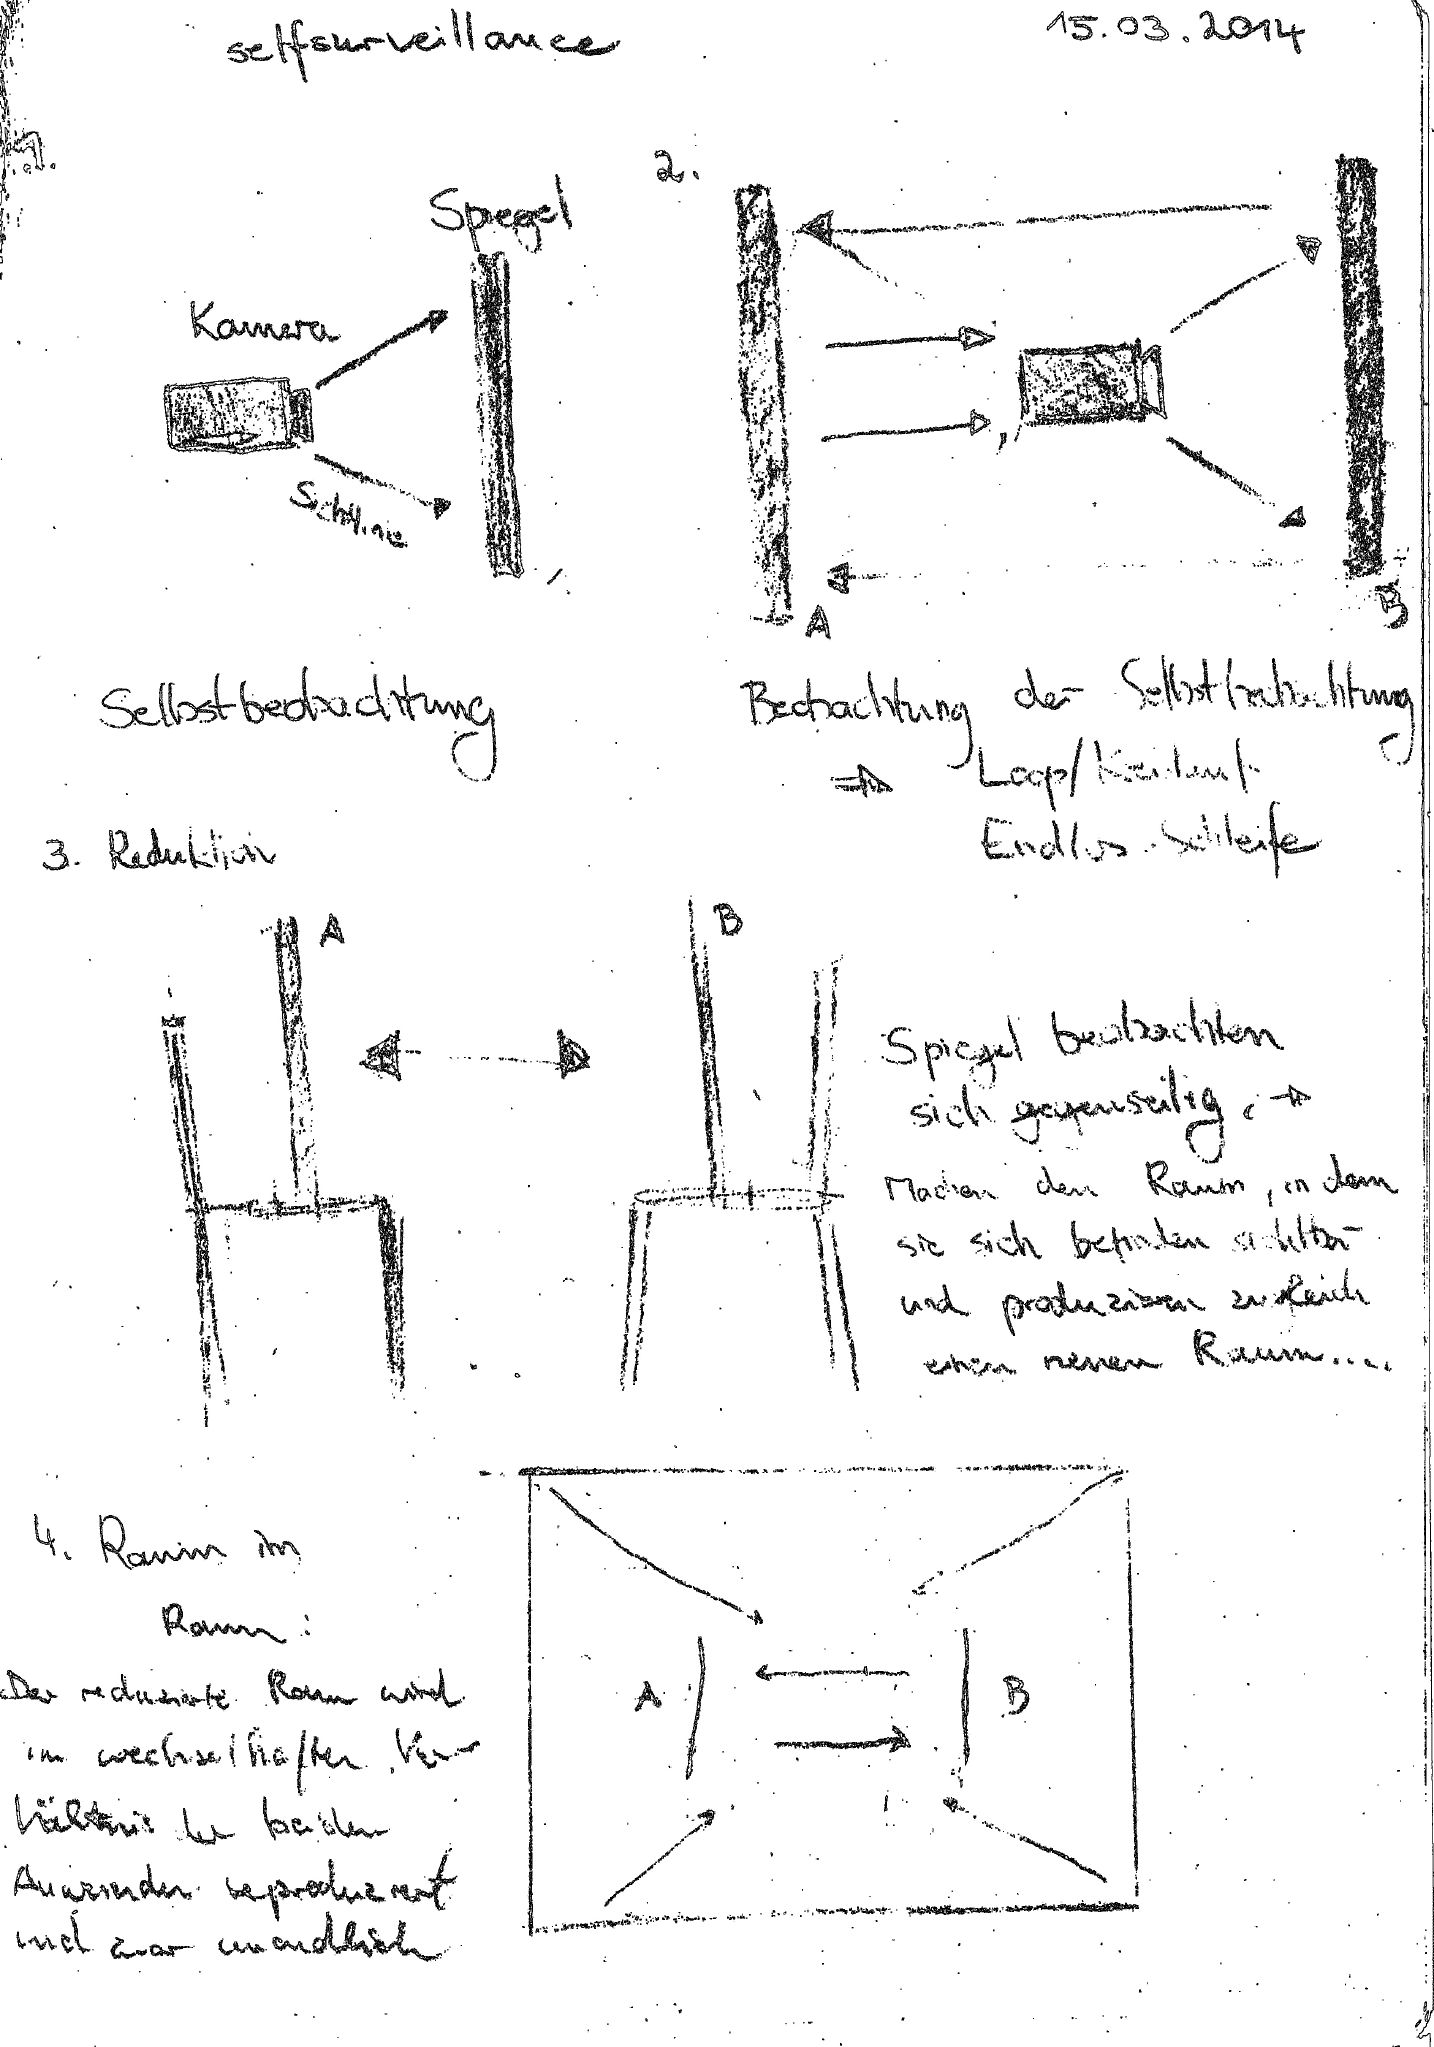 selfsurveillance
15.03.2014
1.
Spiegel
Kamera
Sichtlinie
Selbstbeobachtung
2.
A
B
Beobachtung der Selbstbeobachtung
⇒ Loop/
Endlos-Schleife
3. Reduktion
A
B
Spiegel beobachten
sich gegenseitig. →
Machen den Raum, in dem
sie sich befinden sichtbar
und produzieren zugleich
einen neuen Raum....
4. Raum im
Raum:
Der reduzierte Raum wird
im wechselhaften Ver-
hältnis der beiden
reproduziert
und zwar unendlich
A
B